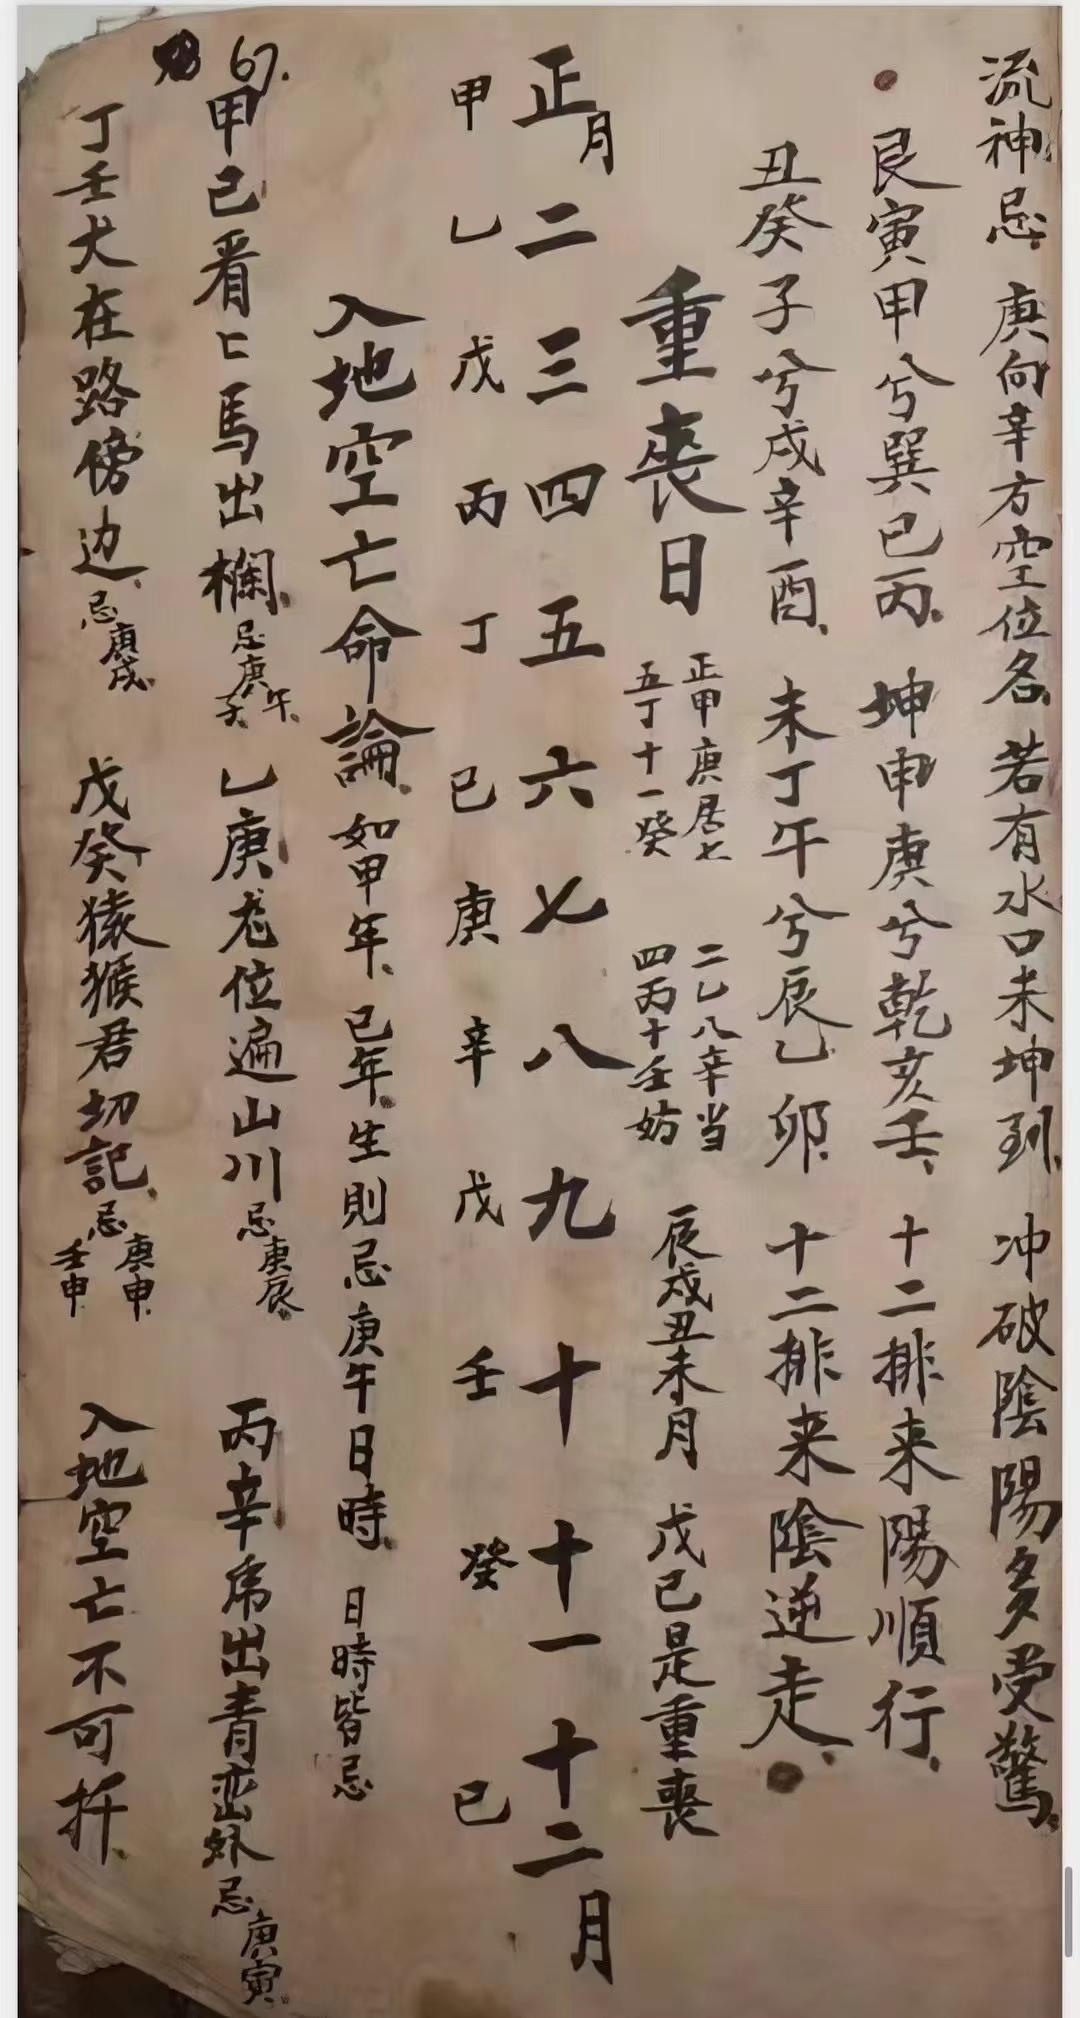 流神忌 庚向辛方空位名 若有水口未坤到 冲破陰陽多受驚
艮寅甲兮巽巳丙 坤申庚兮乾亥壬 十二排来陽順行
丑癸子兮戌辛酉 未丁午兮辰乙卯 十二排来陰逆走
重喪日 正甲庚居七 五丁十一癸 二乙八辛当 四丙十壬妨 辰戌丑未月 戊己是重喪
正月 二 三 四 五 六 七 八 九 十 十一 十二月
甲 乙 戊 丙 丁 己 庚 辛 戊 壬 癸 己
入地空亡命論 如甲年 己年生則忌庚午日時 日時皆忌
67.
甲己看匕馬出欄 忌庚午 子 乙庚龙位遍山川 忌庚辰 丙辛虎出青峦外 忌庚寅
丁壬犬在路傍边 忌庚戌 戊癸猿猴君切記 忌庚申 壬申 入地空亡不可扦